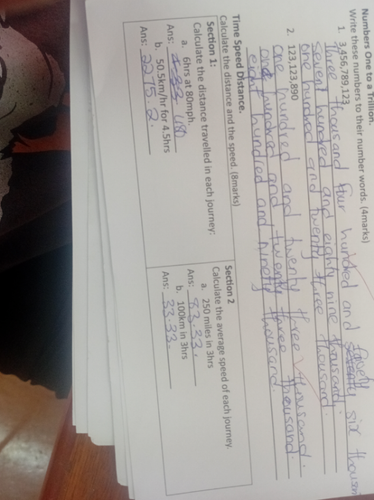 Numbers One to a Trillion.
Write these numbers to their number words. (4marks)
1. 3,456,789,123
three thousand four hundred and
six thousand
seven hundred and eighty nine thousand.
one hundred and twenty three thousand
2. 123,123,890
one hundred and twenty three thousand.
one hundred and twenty three thousand
eight hundred and ninety thousand.
Time Speed Distance.
Calculate the distance and the speed. (8marks)
Section 1:
Calculate the distance travelled in each journey:
a. 6hrs at 80mph.
Ans: 480
b. 50.5km/hr for 4.5hrs
Ans: 2275.2.
Section 2
Calculate the average speed of each journey.
a. 250 miles in 3hrs
Ans: 83.33.
b. 100km in 3hrs
Ans: 33.33.